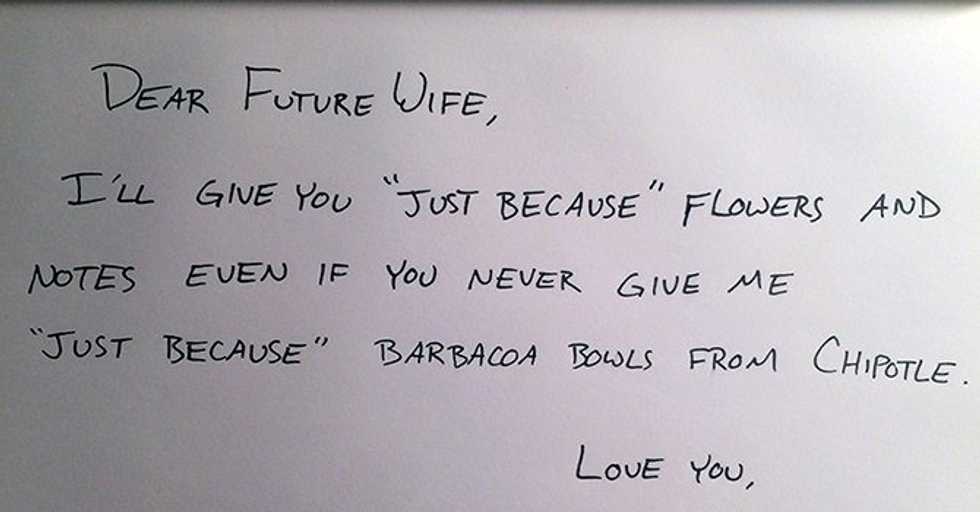 DEAR FUTURE WIFE,
I'LL GIVE YOU "JUST BECAUSE" FLOWERS AND
NOTES EVEN IF YOU NEVER GIVE ME
"JUST BECAUSE" BARBACOA BOWLS FROM CHIPOTLE.
LOVE YOU,